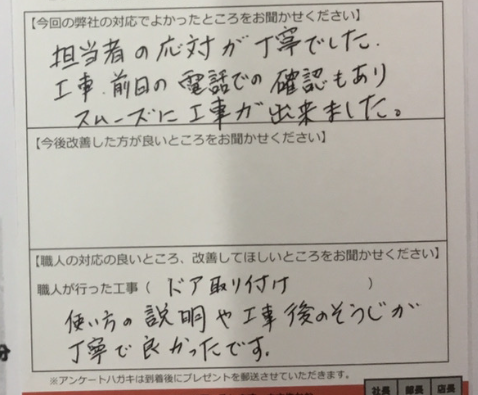 【今回の弊社の対応でよかったところをお聞かせください】
担当者の応対が丁寧でした.
工事.前日の電話での確認もあり
スムーズに工事が出来ました。
【今後改善した方が良いところをお聞かせください】
【職人の対応の良いところ、改善してほしいところをお聞かせください】
職人が行った工事（ドア取り付け）
使い方の説明や工事後のそうじが
丁寧で良かったです.
※アンケートハガキは到着後にプレゼントを郵送させていただきます。
社長 部長 店長